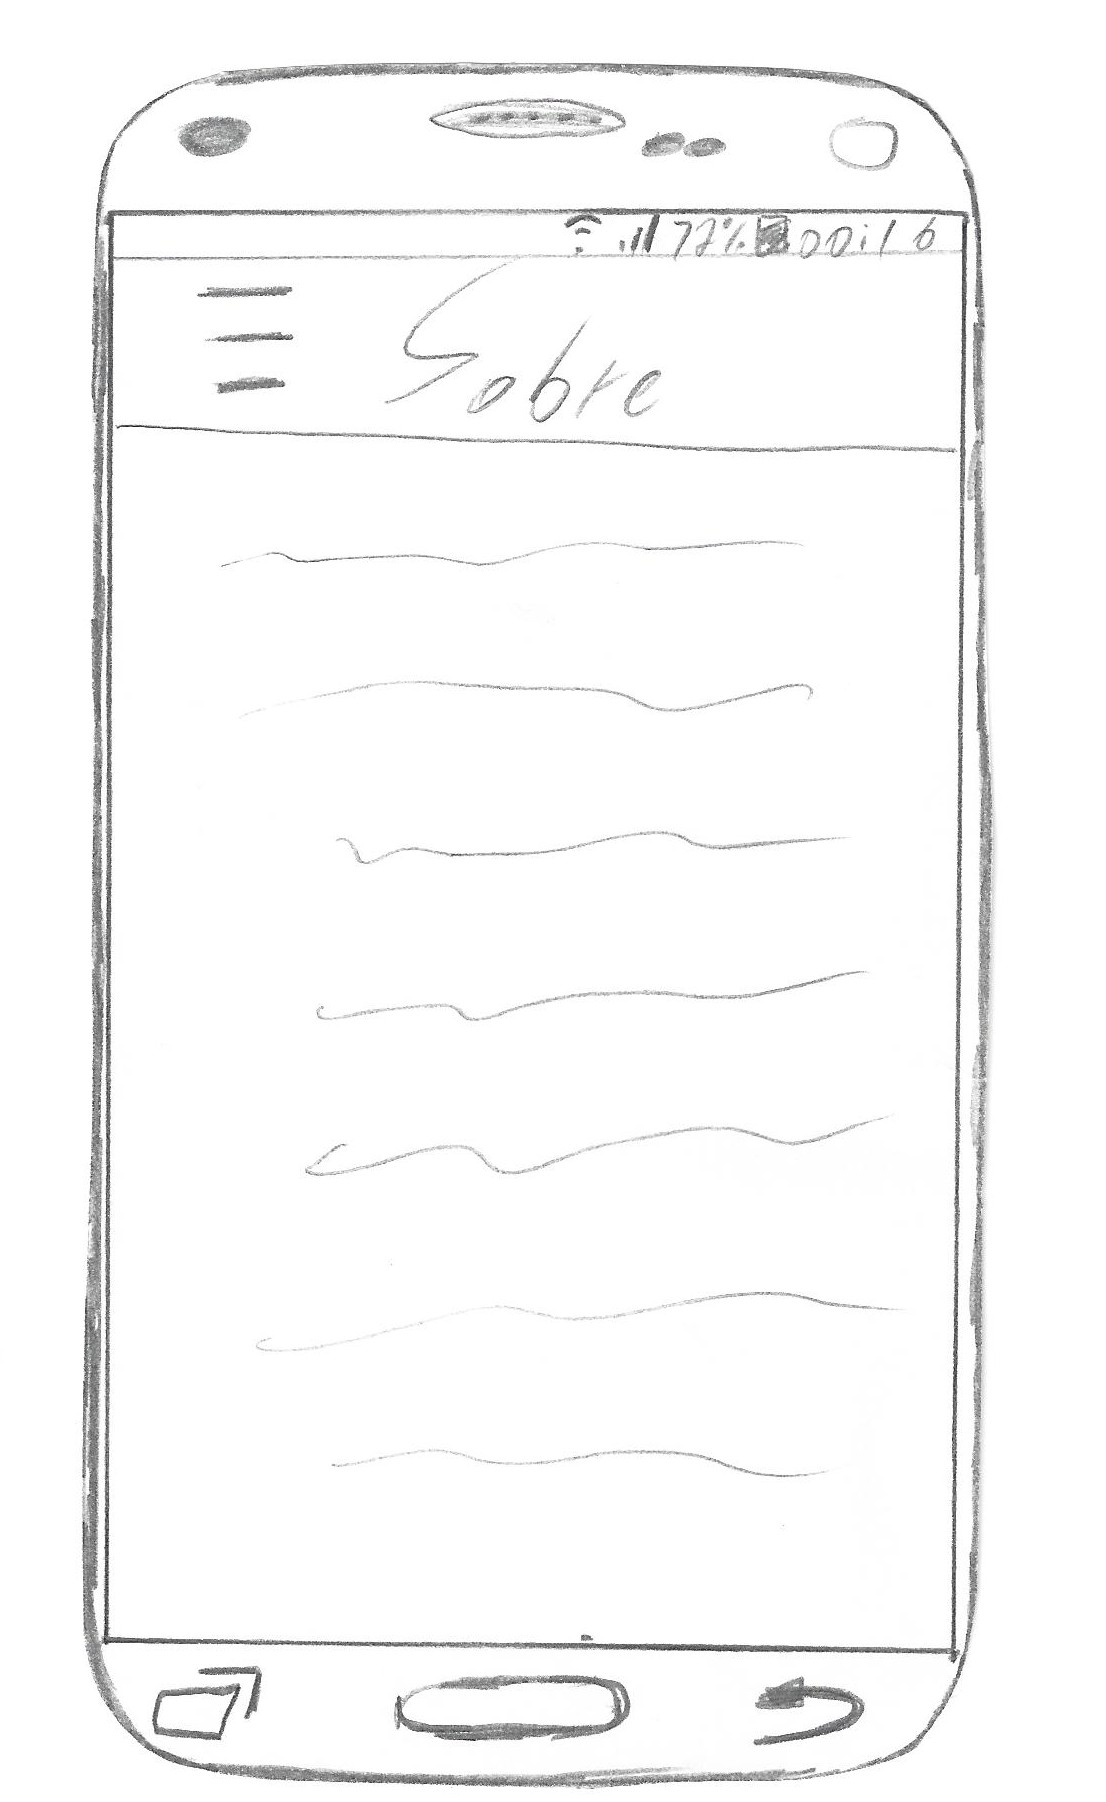 72% 00:16
Sobre